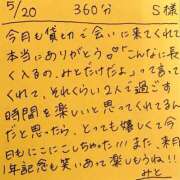 5/20 360分 S様
今月も慣でたく会いに来てくれて
本当にありがとう♡“こんなに長
く入るの、みとだけだよ”って言っ
てくれて、それくらい2人で過ごす
時間を楽しいと思ってくれてるん
だと思ったら、とっても嬉しくて今
日もにこにこしちゃった!!!また、来月
1年記念も笑いあって楽しもうね!!
みと